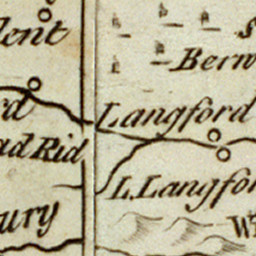 lent
S
Berw
Langford
rd
ad Rid
L.Langfor
ury
W